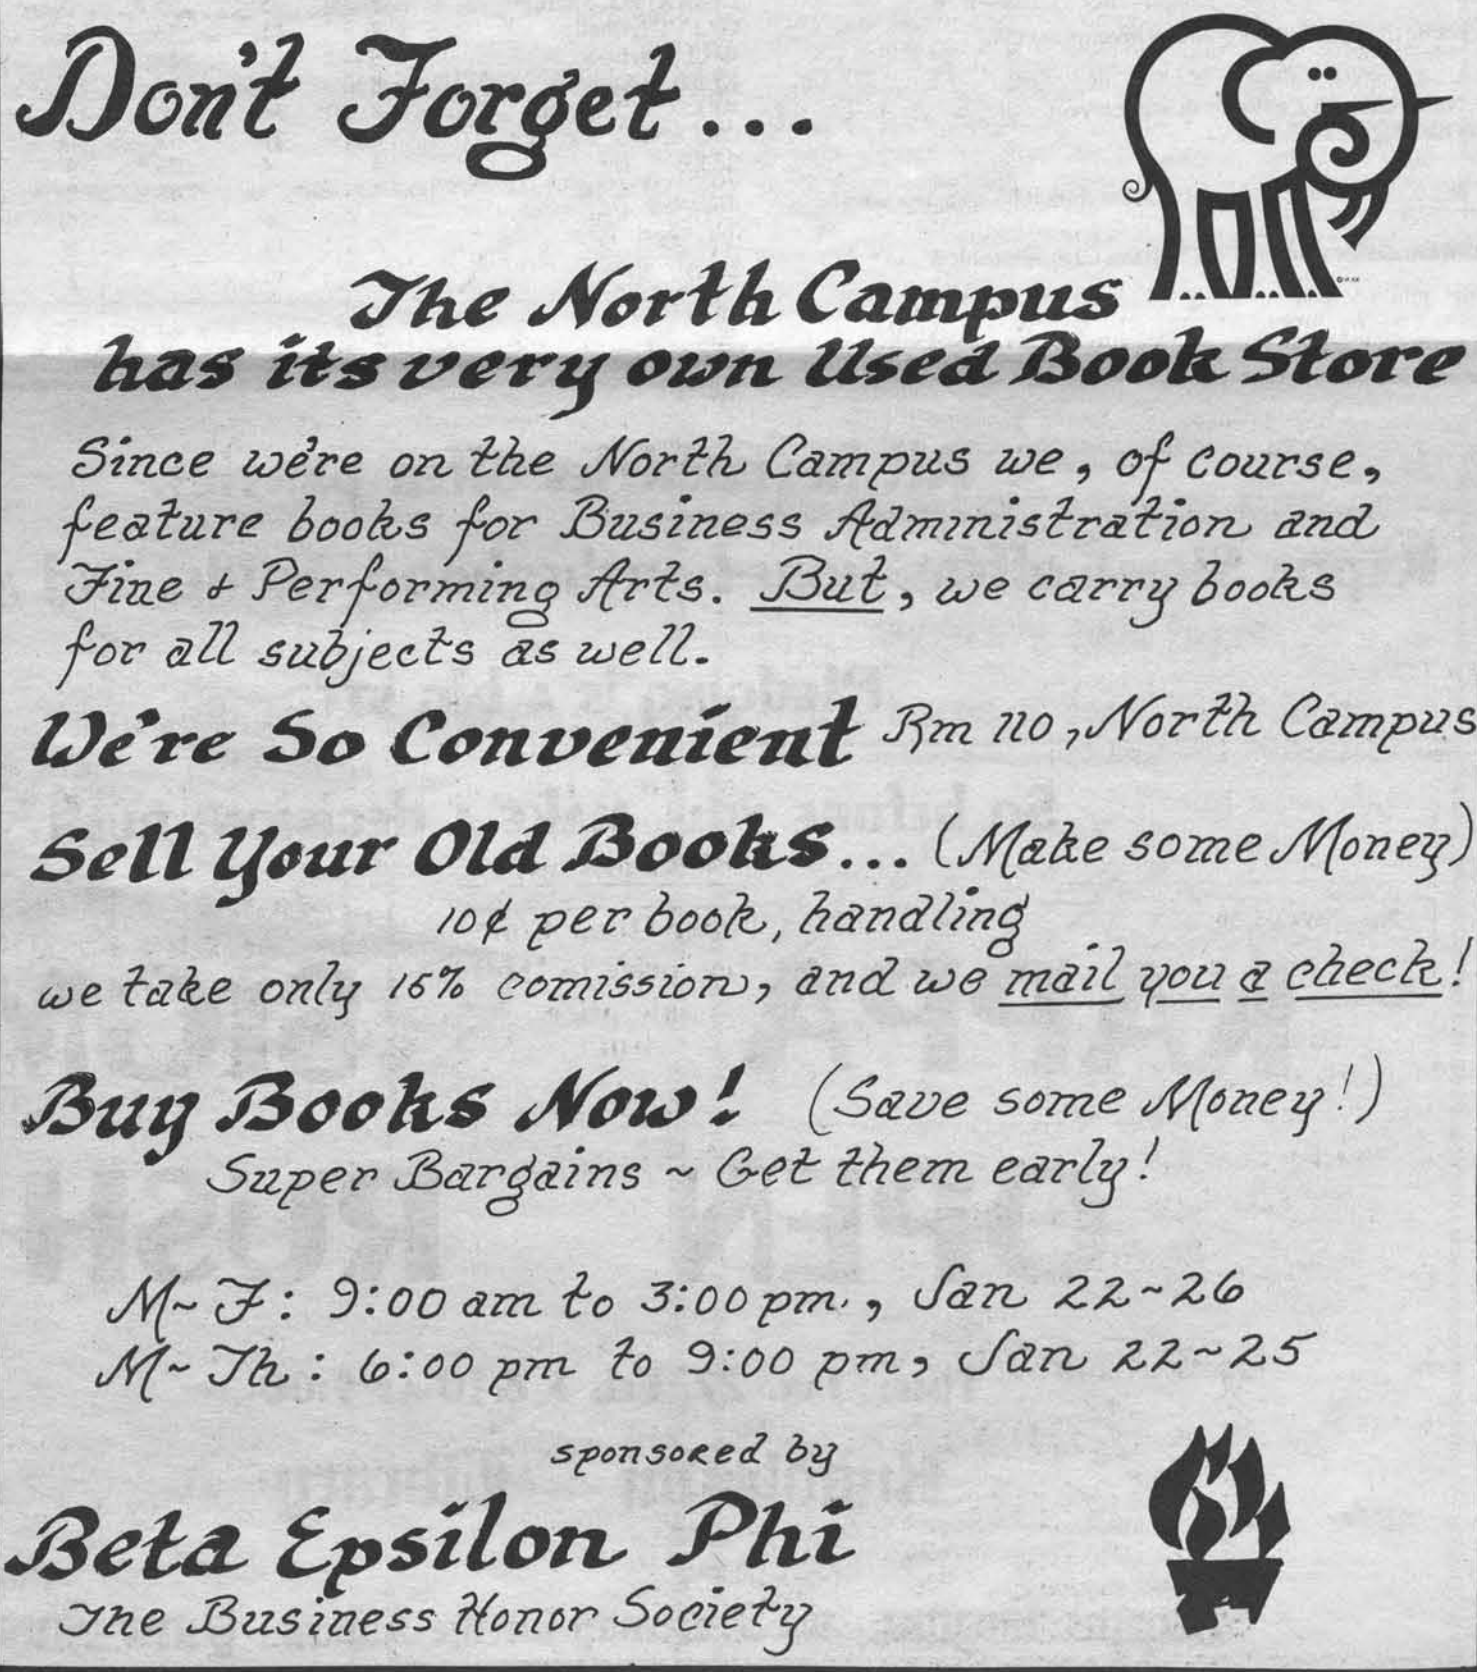 Don't Forget...
The North Campus
has its very own Used Book Store
Since we're on the North Campus we, of course,
feature books for Business Administration and
Fine & Performing Arts. But, we carry books
for all subjects as well.
We're So Convenient Rm 110, North Campus
Sell Your Old Books... (Make some Money)
10¢ per book, handling
we take only 15% comission, and we mail you a check!
Buy Books Now! (Save some Money!)
Super Bargains ~ Get them early!
M~F: 9:00 am to 3:00 pm., Jan 22~26
M~Th: 6:00 pm to 9:00 pm, Jan 22~25
sponsored by
Beta Epsilon Phi
The Business Honor Society